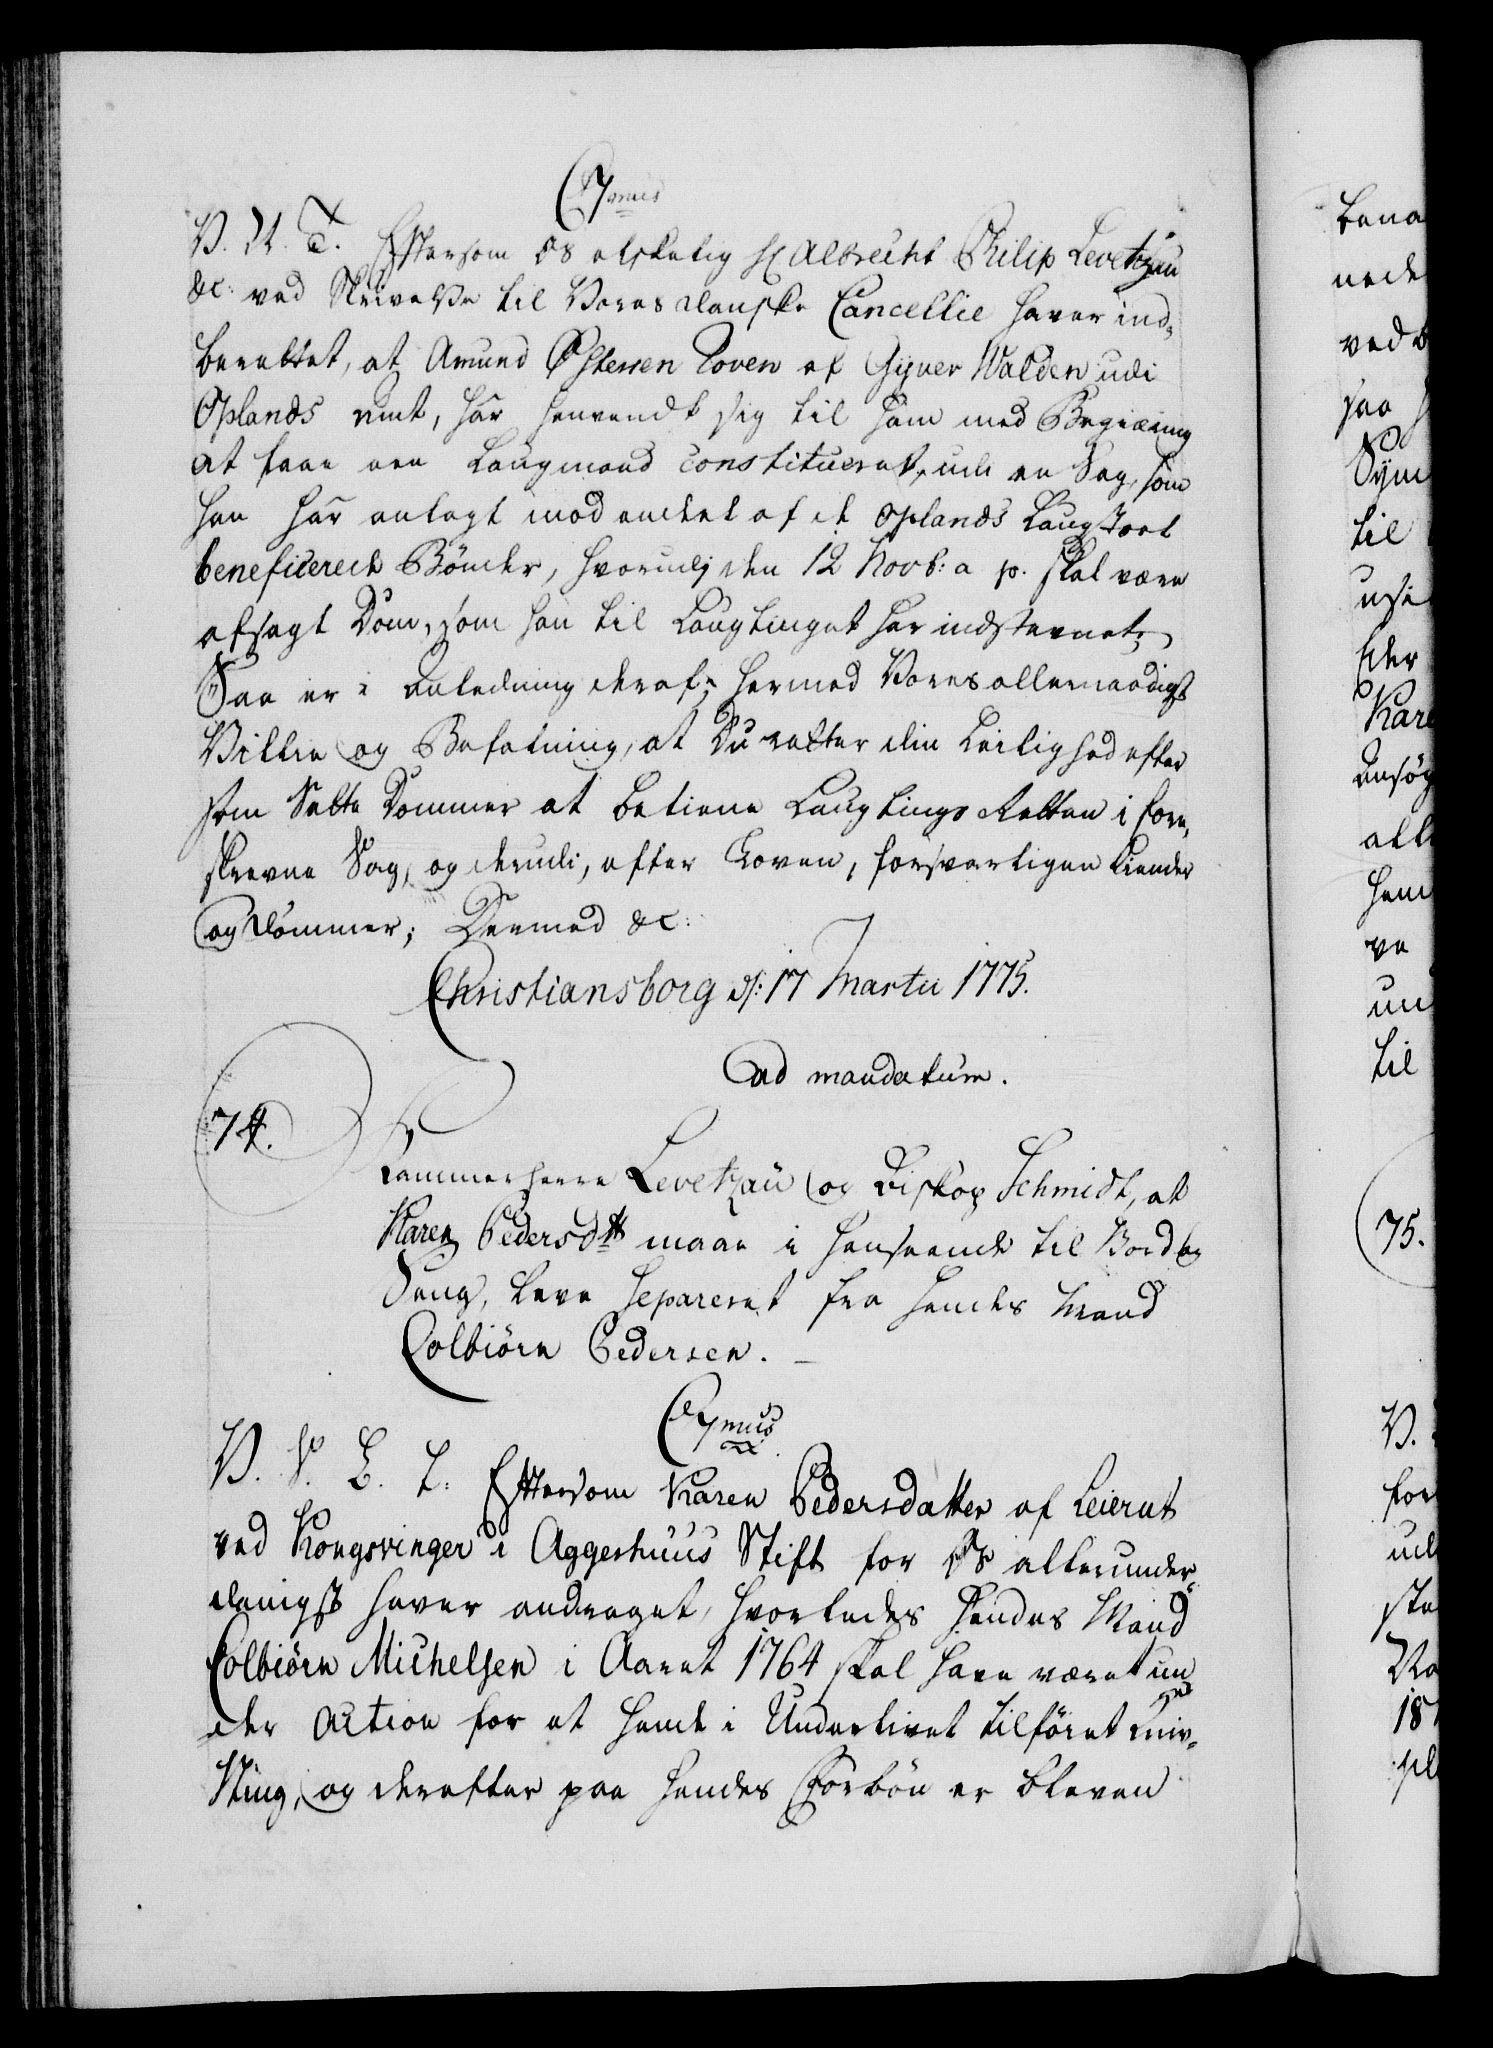 C7mus
V. N. T. Eftersom Os elskelig H. Albrecht Philip Levetzau
&c: ved Skrivelse til Vores Danske Cancellie haver ind-
berettet, at Amund Østensen Toven af Gyver Walden udi
Oplands Amt, har henvendt sig til ham med Begiæring
at faae een Laugmand constitueret, udi en Sag, som
han har anlagt mod endeel af de Oplands Laugstoel
beneficerede Bønder, hvorudj den 12 Novb: a p. skal være
afsagt Dom, som han til Laugtinget har indstævnet;
Saa er i Anledning deraf, hermed Vores allernaadigst
Villie og Befalning, at Du retter din Leilighed efter
som Sætte Dommer at betiene Laugtings Retten i fore-
skrevne Sag, og derudi, efter Loven, forsvarligen kiender
og dømmer; Dermed &c:
Christiansborg d: 17 Martii 1775.
ad mandatum.
74.
Cammerherre Levetzau og Biskop Schmidt, at
Karen Pedersdtt maae i henseende til Bord og
Seng, leve separeret fra hendes Mand
Colbiørn Pedersen.
C7mus
V. S. B. T. Eftersom Karen Pedersdatter af Leiret
ved Kongsvinger i Aggerhuus Stift for Os allerunder-
danigst haver andraget, hvorledes hendes Mand
Colbiørn Michelsen i Aaret 1764 skal have været un
der Action for at hende i Underlivet tilføret Kniv-
Sting, og derefter paa hendes Forbøn er bleven
bena
nede
ved b
saa
Sÿm
til
usi
Eder
Kare
Ansøg
all
hem
ve
un
til
75.
V.
for
ud
sta
Vo
18
pl